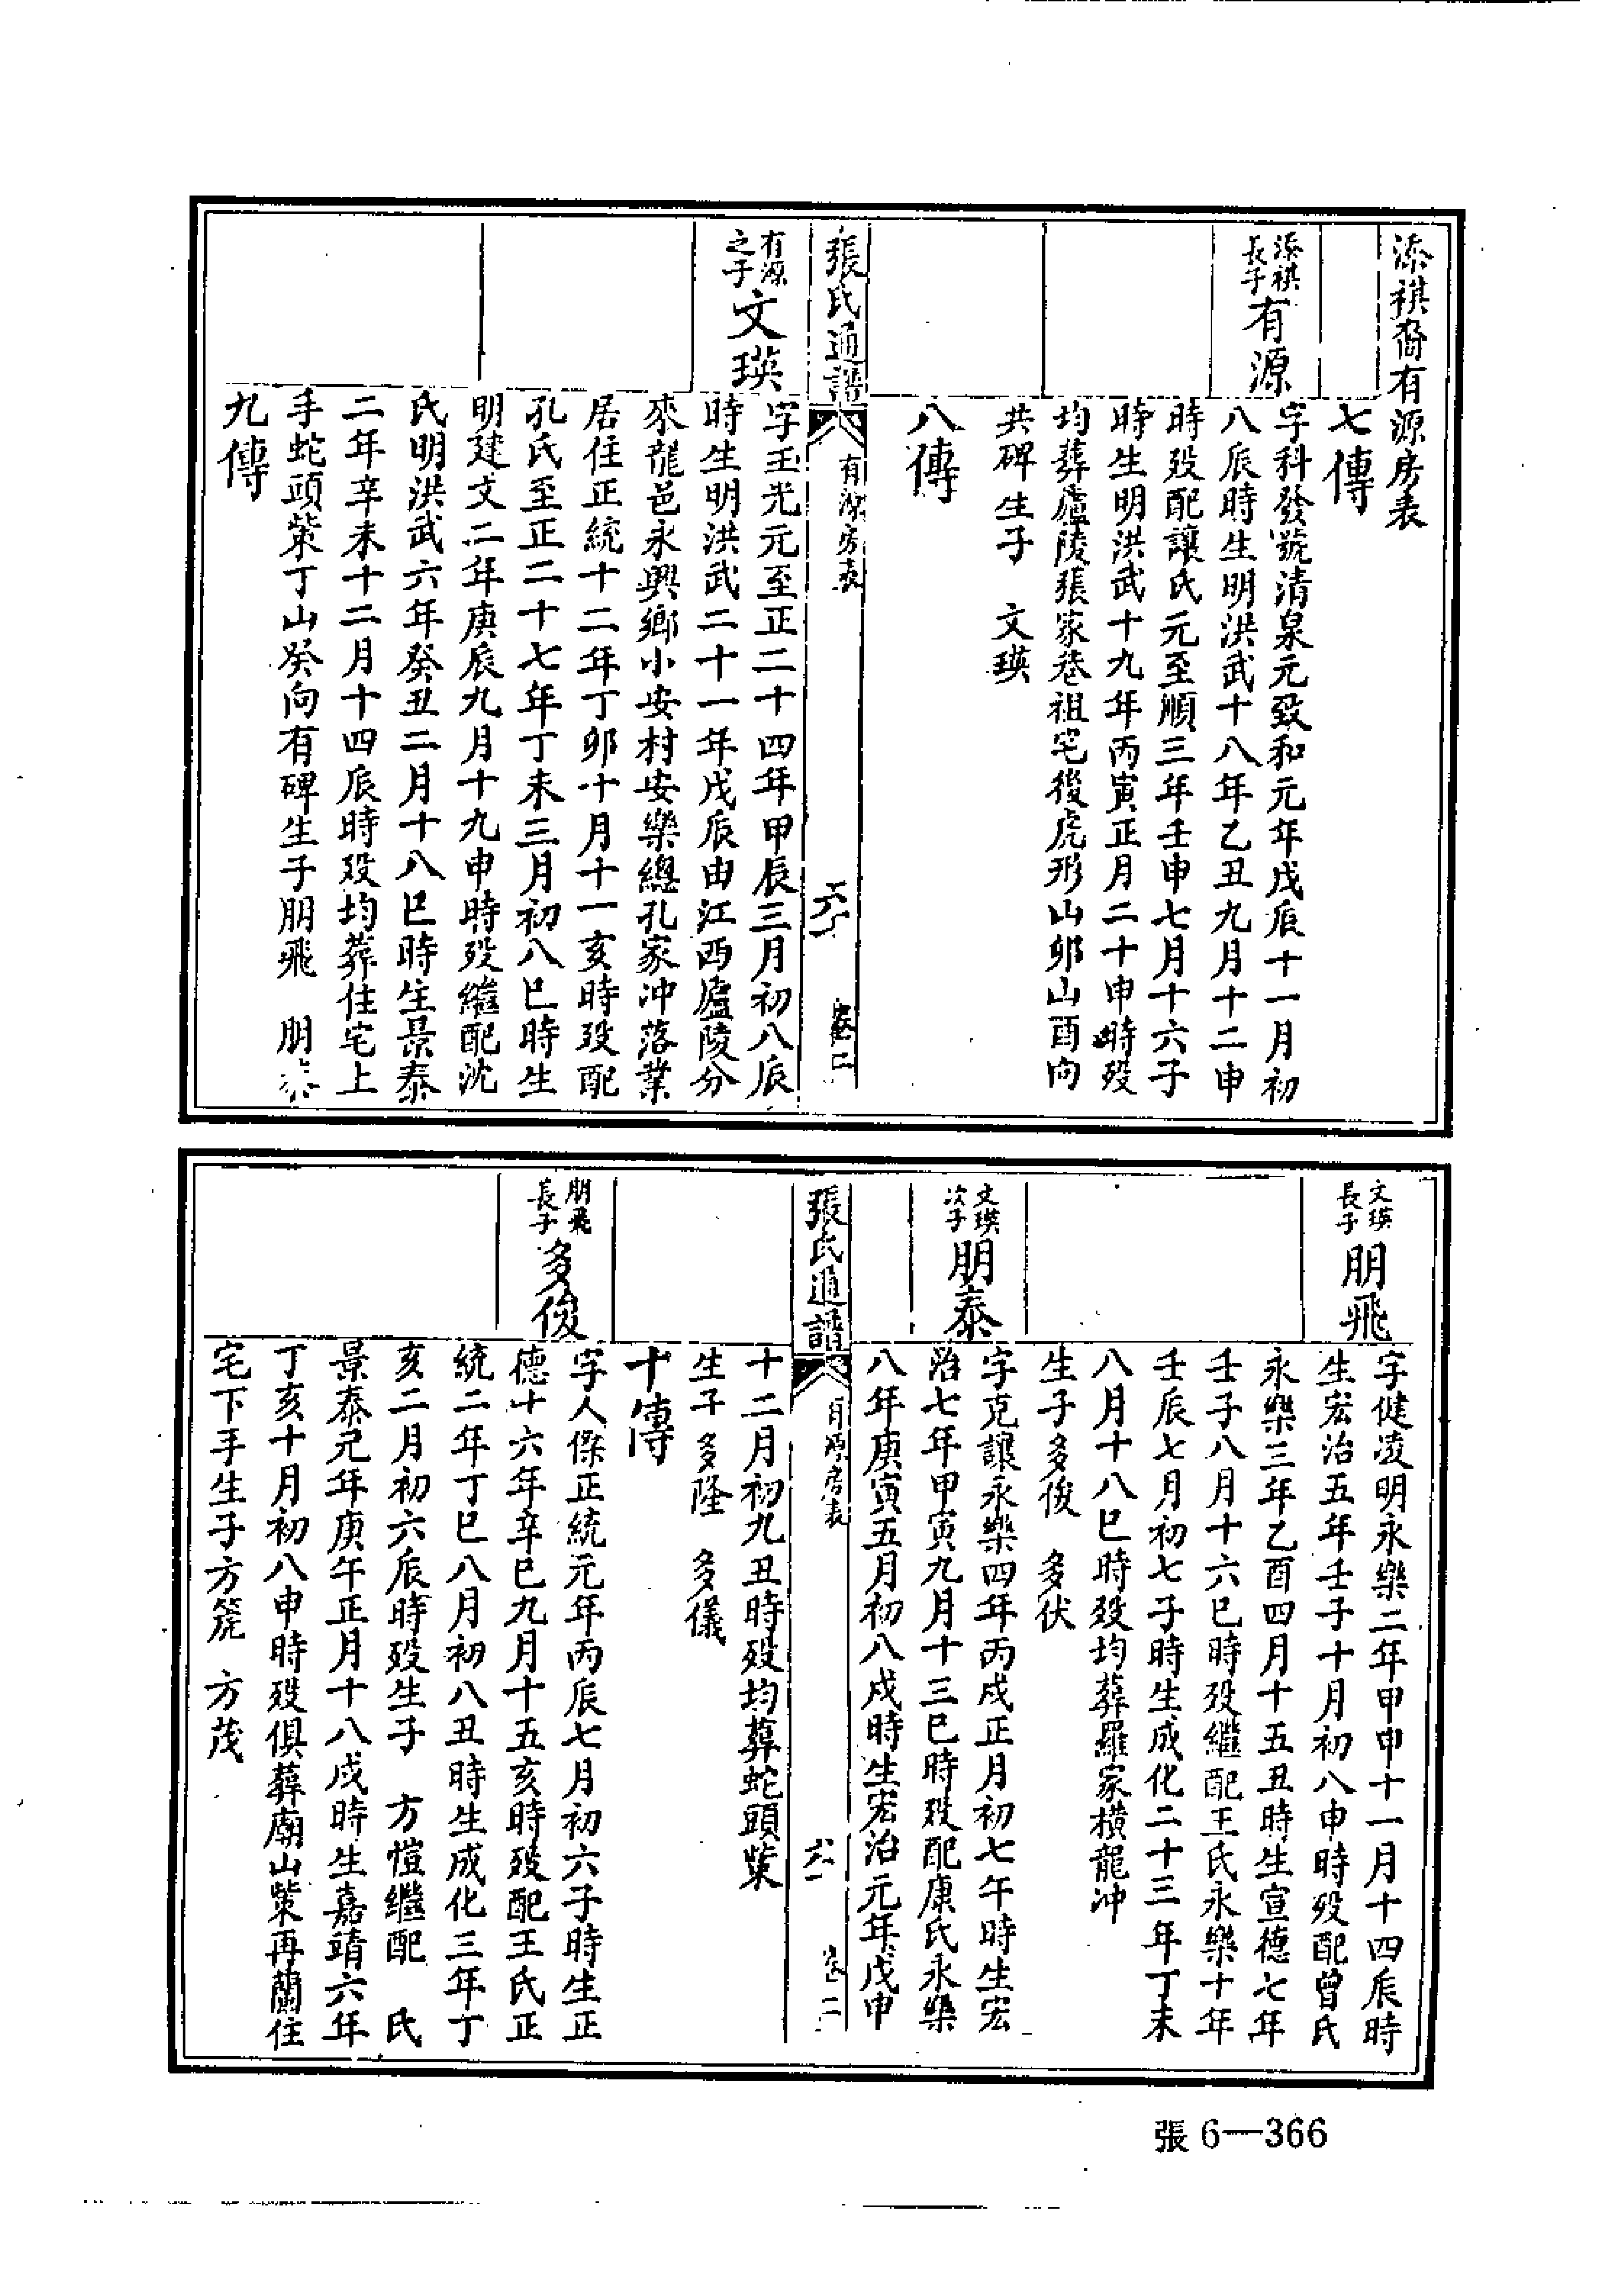 添祺裔有源房表
七傳
添祺長子
有源
字科發號清泉元致和元年戊辰十一月初
八辰時生明洪武十八年乙丑九月十二申
時歿配讓氏元至順三年壬申七月十六子
時生明洪武十九年丙寅正月二十申時歿
均葬廬陵張家巷祖宅後虎形山卯山酉向
共碑生子　文瑛
八傳
張氏通譜　有源房表　卷二
有源之子
文瑛
字玉光元至正二十四年甲辰三月初八辰
時生明洪武二十一年戊辰由江西廬陵分
來龍邑永興鄉小安村安樂總孔家冲落業
居住正統十二年丁卯十月十一亥時歿配
孔氏至正二十七年丁未三月初八巳時生
明建文二年庚辰九月十九申時歿繼配沈
氏明洪武六年癸丑二月十八巳時生景泰
二年辛未十二月十四辰時歿均葬住宅上
手蛇頭䇿丁山癸向有碑生子朋飛　朋泰
九傳
文瑛長子
朋飛
字健凌明永樂二年甲申十一月十四辰時
生宏治五年壬子十月初八申時歿配曾氏
永樂三年乙酉四月十五丑時生宣德七年
壬子八月十六巳時歿繼配王氏永樂十年
壬辰七月初七子時生成化二十三年丁未
八月十八巳時歿均葬羅家橫龍冲
生子多俊　多伏
文瑛次子
朋泰
字克讓永樂四年丙戌正月初七午時生宏
治七年甲寅九月十三巳時歿配康氏永樂
八年庚寅五月初八戌時生宏治元年戊申
張氏通譜　有源房表　卷二
十二月初九丑時歿均葬蛇頭䇿
生子多隆　多儀
十傳
朋飛長子
多俊
字人傑正統元年丙辰七月初六子時生正
德十六年辛巳九月十五亥時歿配王氏正
統二年丁巳八月初八丑時生成化三年丁
亥二月初六辰時歿生子　方愷繼配　氏
景泰元年庚午正月十八戌時生嘉靖六年
丁亥十月初八申時歿俱葬廟山䇿再蘭住
宅下手生子方箎　方茂
張6—366